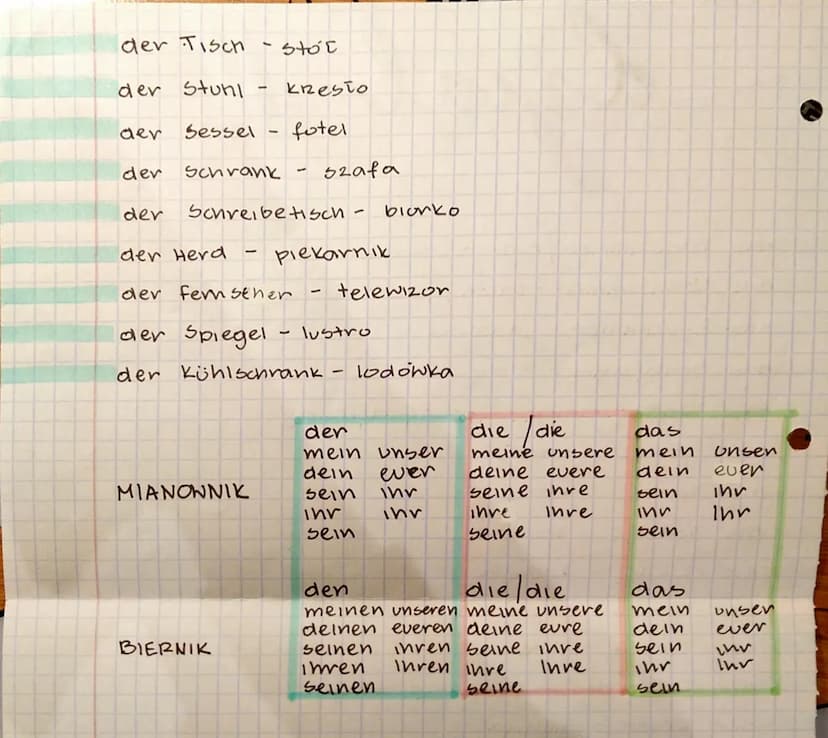 der Tisch - stół
der Stuhl - krzesło
der Sessel - fotel
der Schrank - szafa
der Schreibetisch - biurko
der Herd - piekarnik
der Fernseher - telewizor
der Spiegel - lustro
der Kühlschrank - lodówka
der die / die das
mein unser meine unsere mein unser
dein euer deine euere dein euer
MIANOWNIK sein ihr seine ihre sein ihr
ihr ihr ihre ihre ihr Ihr
sein seine sein
den die/die das
meinen unseren meine unsere mein unser
deinen eueren deine eure dein euer
BIERNIK seinen ihren seine ihre sein ihr
ihren ihren ihre Ihre ihr Ihr
seinen seine sein